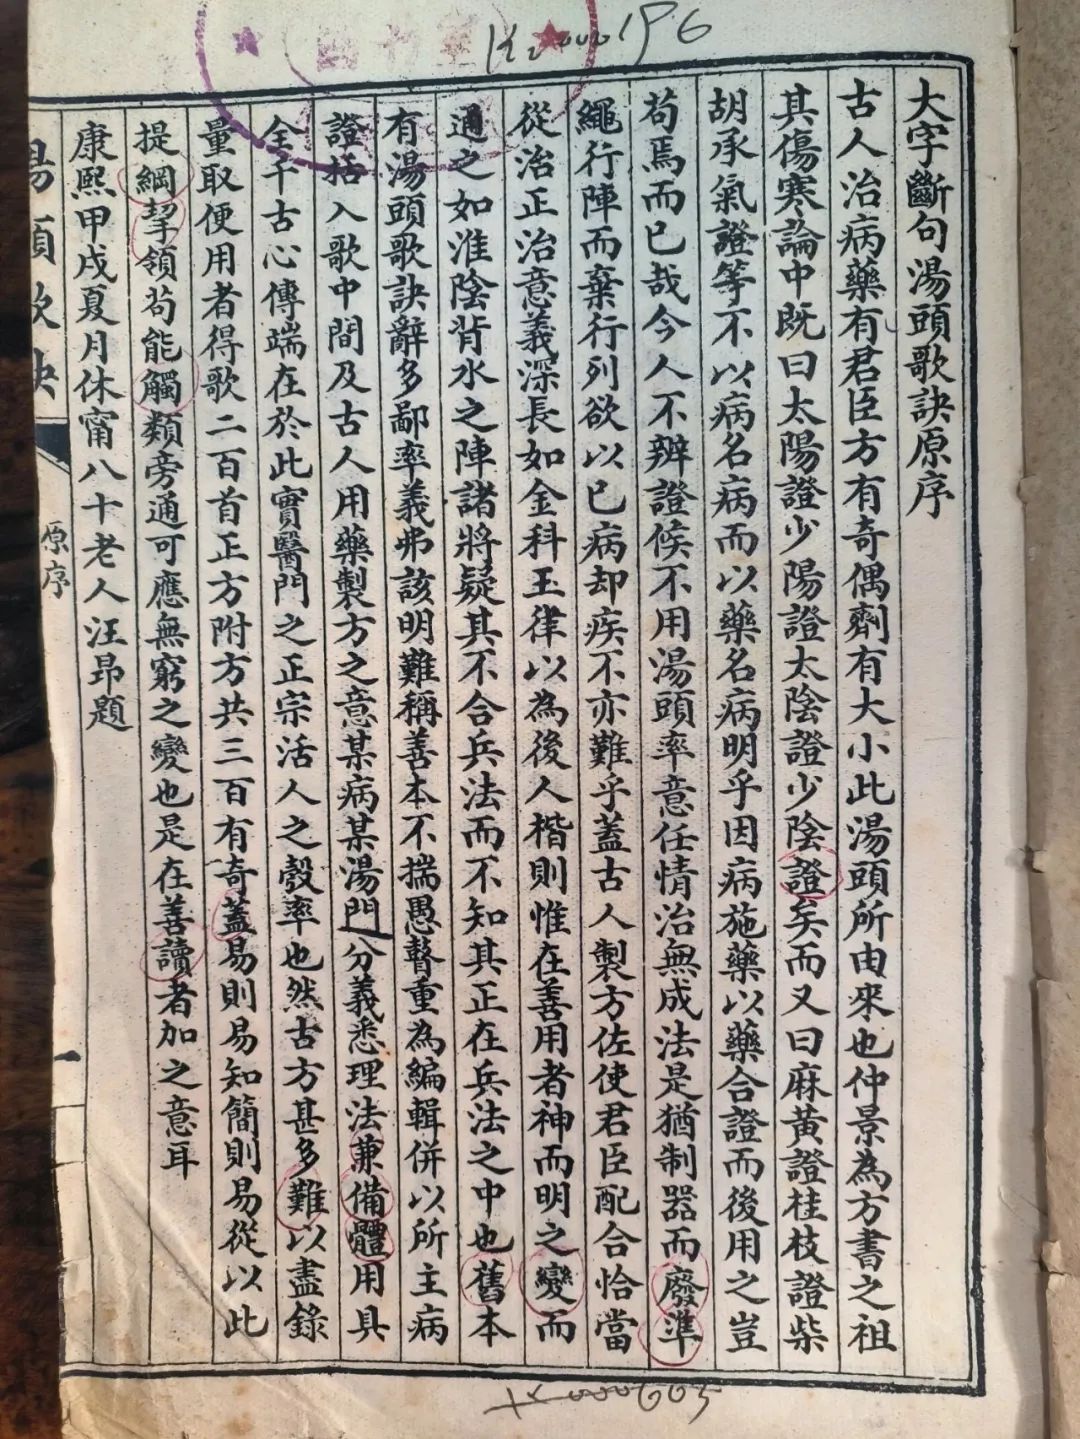 大字斷句湯頭歌訣原序
古人治病藥有君臣方有奇偶劑有大小此湯頭所由來也仲景為方書之祖
其傷寒論中既曰太陽證少陽證太陰證少陰證矣而又曰麻黃證桂枝證柴
胡承氣證等不以病名病而以藥名病明乎因病施藥以藥合證而後用之豈
苟焉而已哉今人不辨證候不用湯頭率意任情治無成法是猶制器而廢準
繩行陣而棄行列欲以已病却疾不亦難乎蓋古人製方佐使君臣配合恰當
從治正治意義深長如金科玉律以為後人楷則惟在善用者神而明之變而
通之如淮陰背水之陣諸將疑其不合兵法而不知其正在兵法之中也舊本
有湯頭歌訣辭多鄙率義弗該明難稱善本不揣愚瞽重為編輯併以所主病
證括入歌中間及古人用藥製方之意某病某湯門分義悉理法兼備體用具
全千古心傳端在於此實醫門之正宗活人之彀率也然古方甚多難以盡錄
量取便用者得歌二百首正方附方共三百有奇蓋易則易知簡則易從以此
提綱挈領苟能觸類旁通可應無窮之變也是在善讀者加之意耳
康熙甲戌夏月休甯八十老人汪昂題
湯頭歌訣
原序
196
605